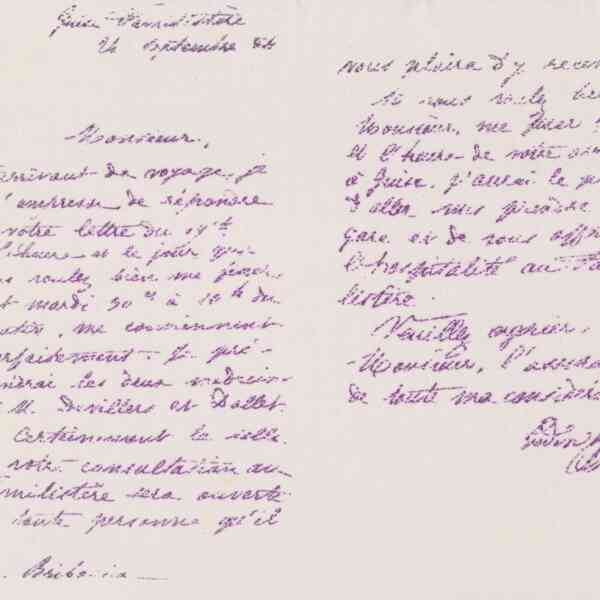 Guise Familistère
24 Septembre 84
Monsieur,
arrivant de voyage, je
m'empresse de répondre
votre lettre du 19 ct
L'heure et le jour que
voulez bien me fixer
mardi 30 ct à 10 h du
matin, me conviennent
parfaisement. Je pré-
les deux médecins
M. Devillers et Dollet.
Certainement la salle
votre consultation au
milistère sera ouverte
toute personne qu'il
Bribosia
vous plaira d'y recev
Si vous voulez bi
Monsieur, me fixer
et l'heure de votre
à Guise, j'aurai le
d'aller vous prendre
gare et de vous offr
l'hospitalité au Fa
listère.
Veuillez agréer,
Monsieur, l'assura
de toute ma considér
Godin